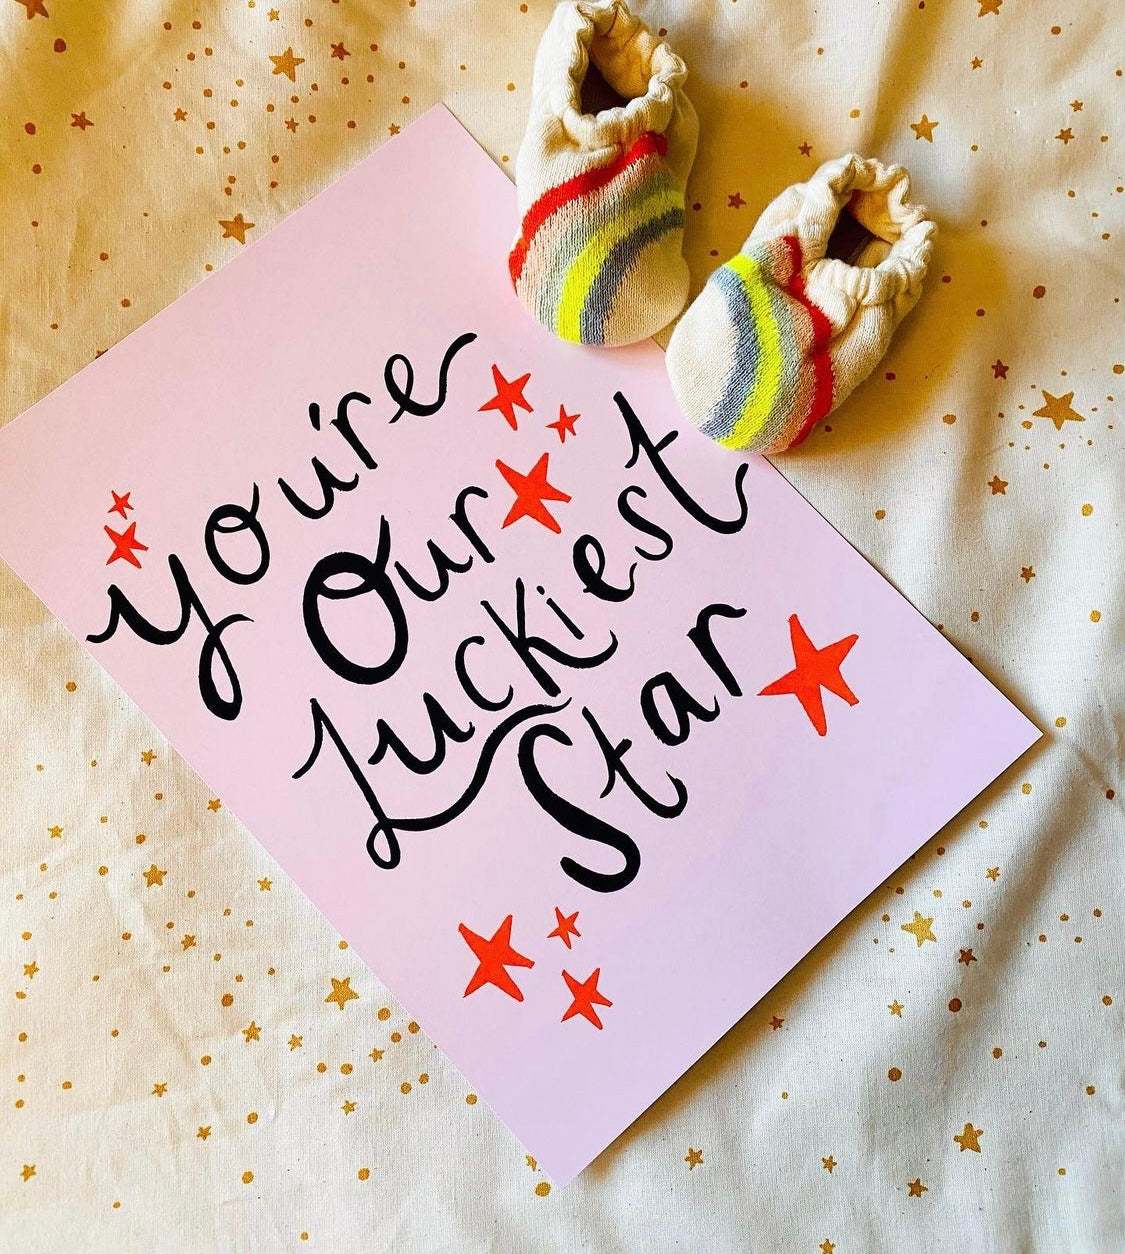 you're
Our
Luckiest
Star